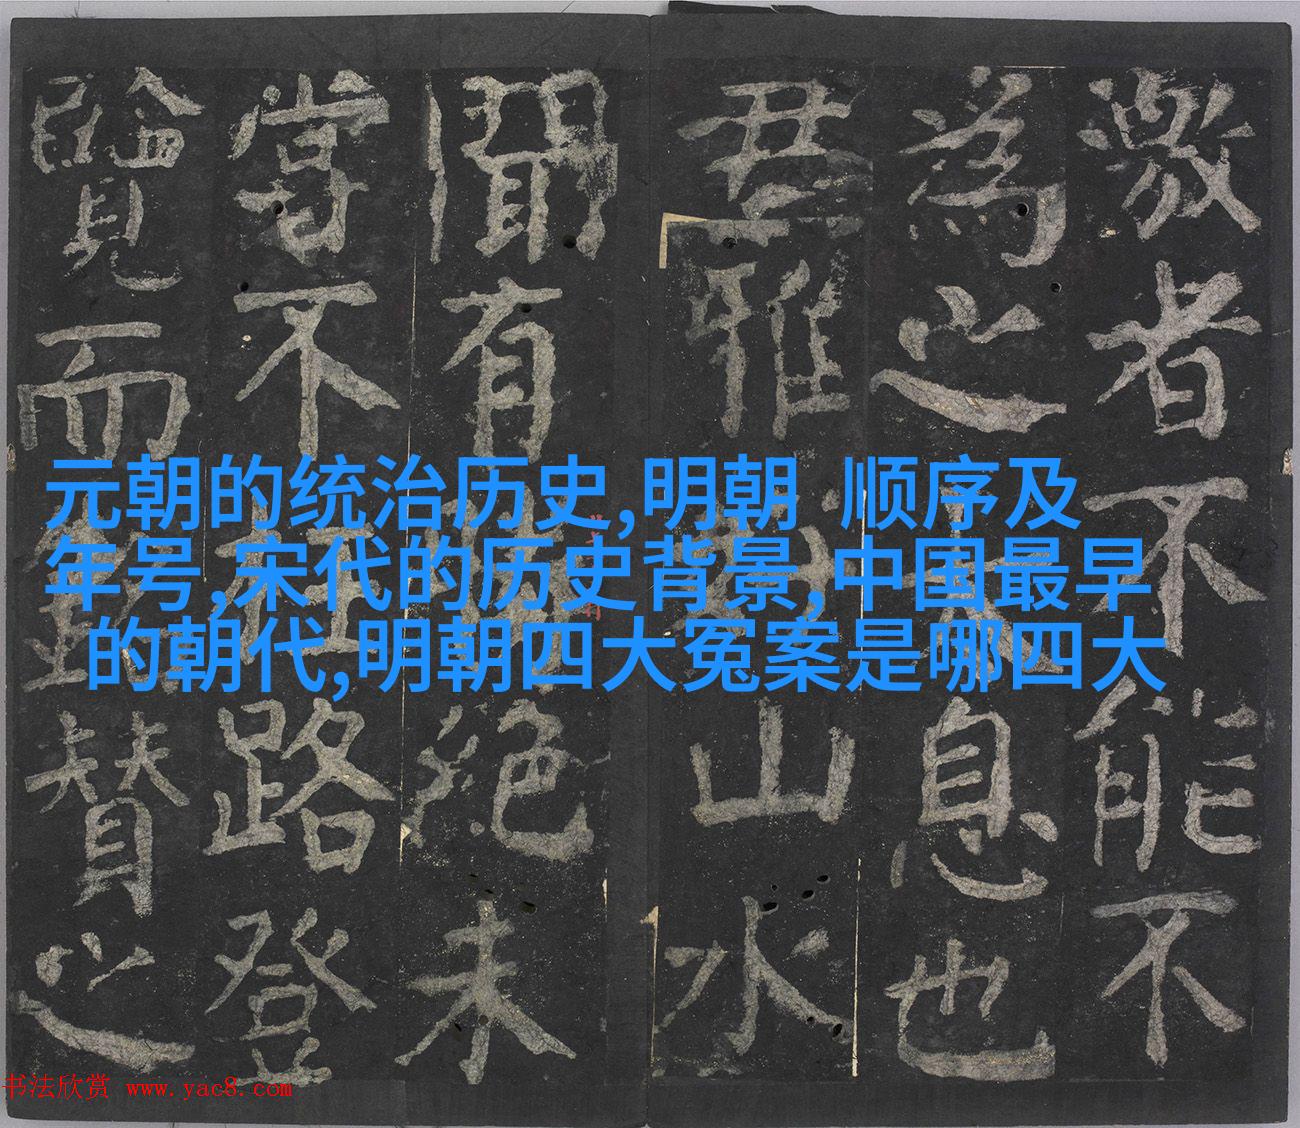 元朝的统治历史,明朝 顺序及
年号,宋代的历史背景,中国最早
的朝代,明朝四大冤案是哪四大
激者不能不
為之息也
君雅山水
聞有絕未
嘗不枉路登
覽而賛之
书法欣赏 www.yac8.com